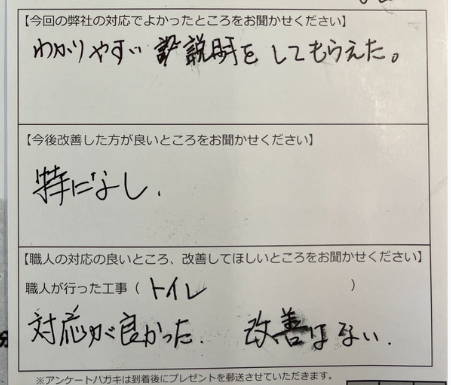 【今回の弊社の対応でよかったところをお聞かせください】
わかりやすい 説明を してもらえた。
【今後改善した方が良いところをお聞かせください】
特になし.
【職人の対応の良いところ、改善してほしいところをお聞かせください】
職人が行った工事（ トイレ ）
対応が良かった. 改善はない.
※アンケートハガキは到着後にプレゼントを郵送させていただきます。